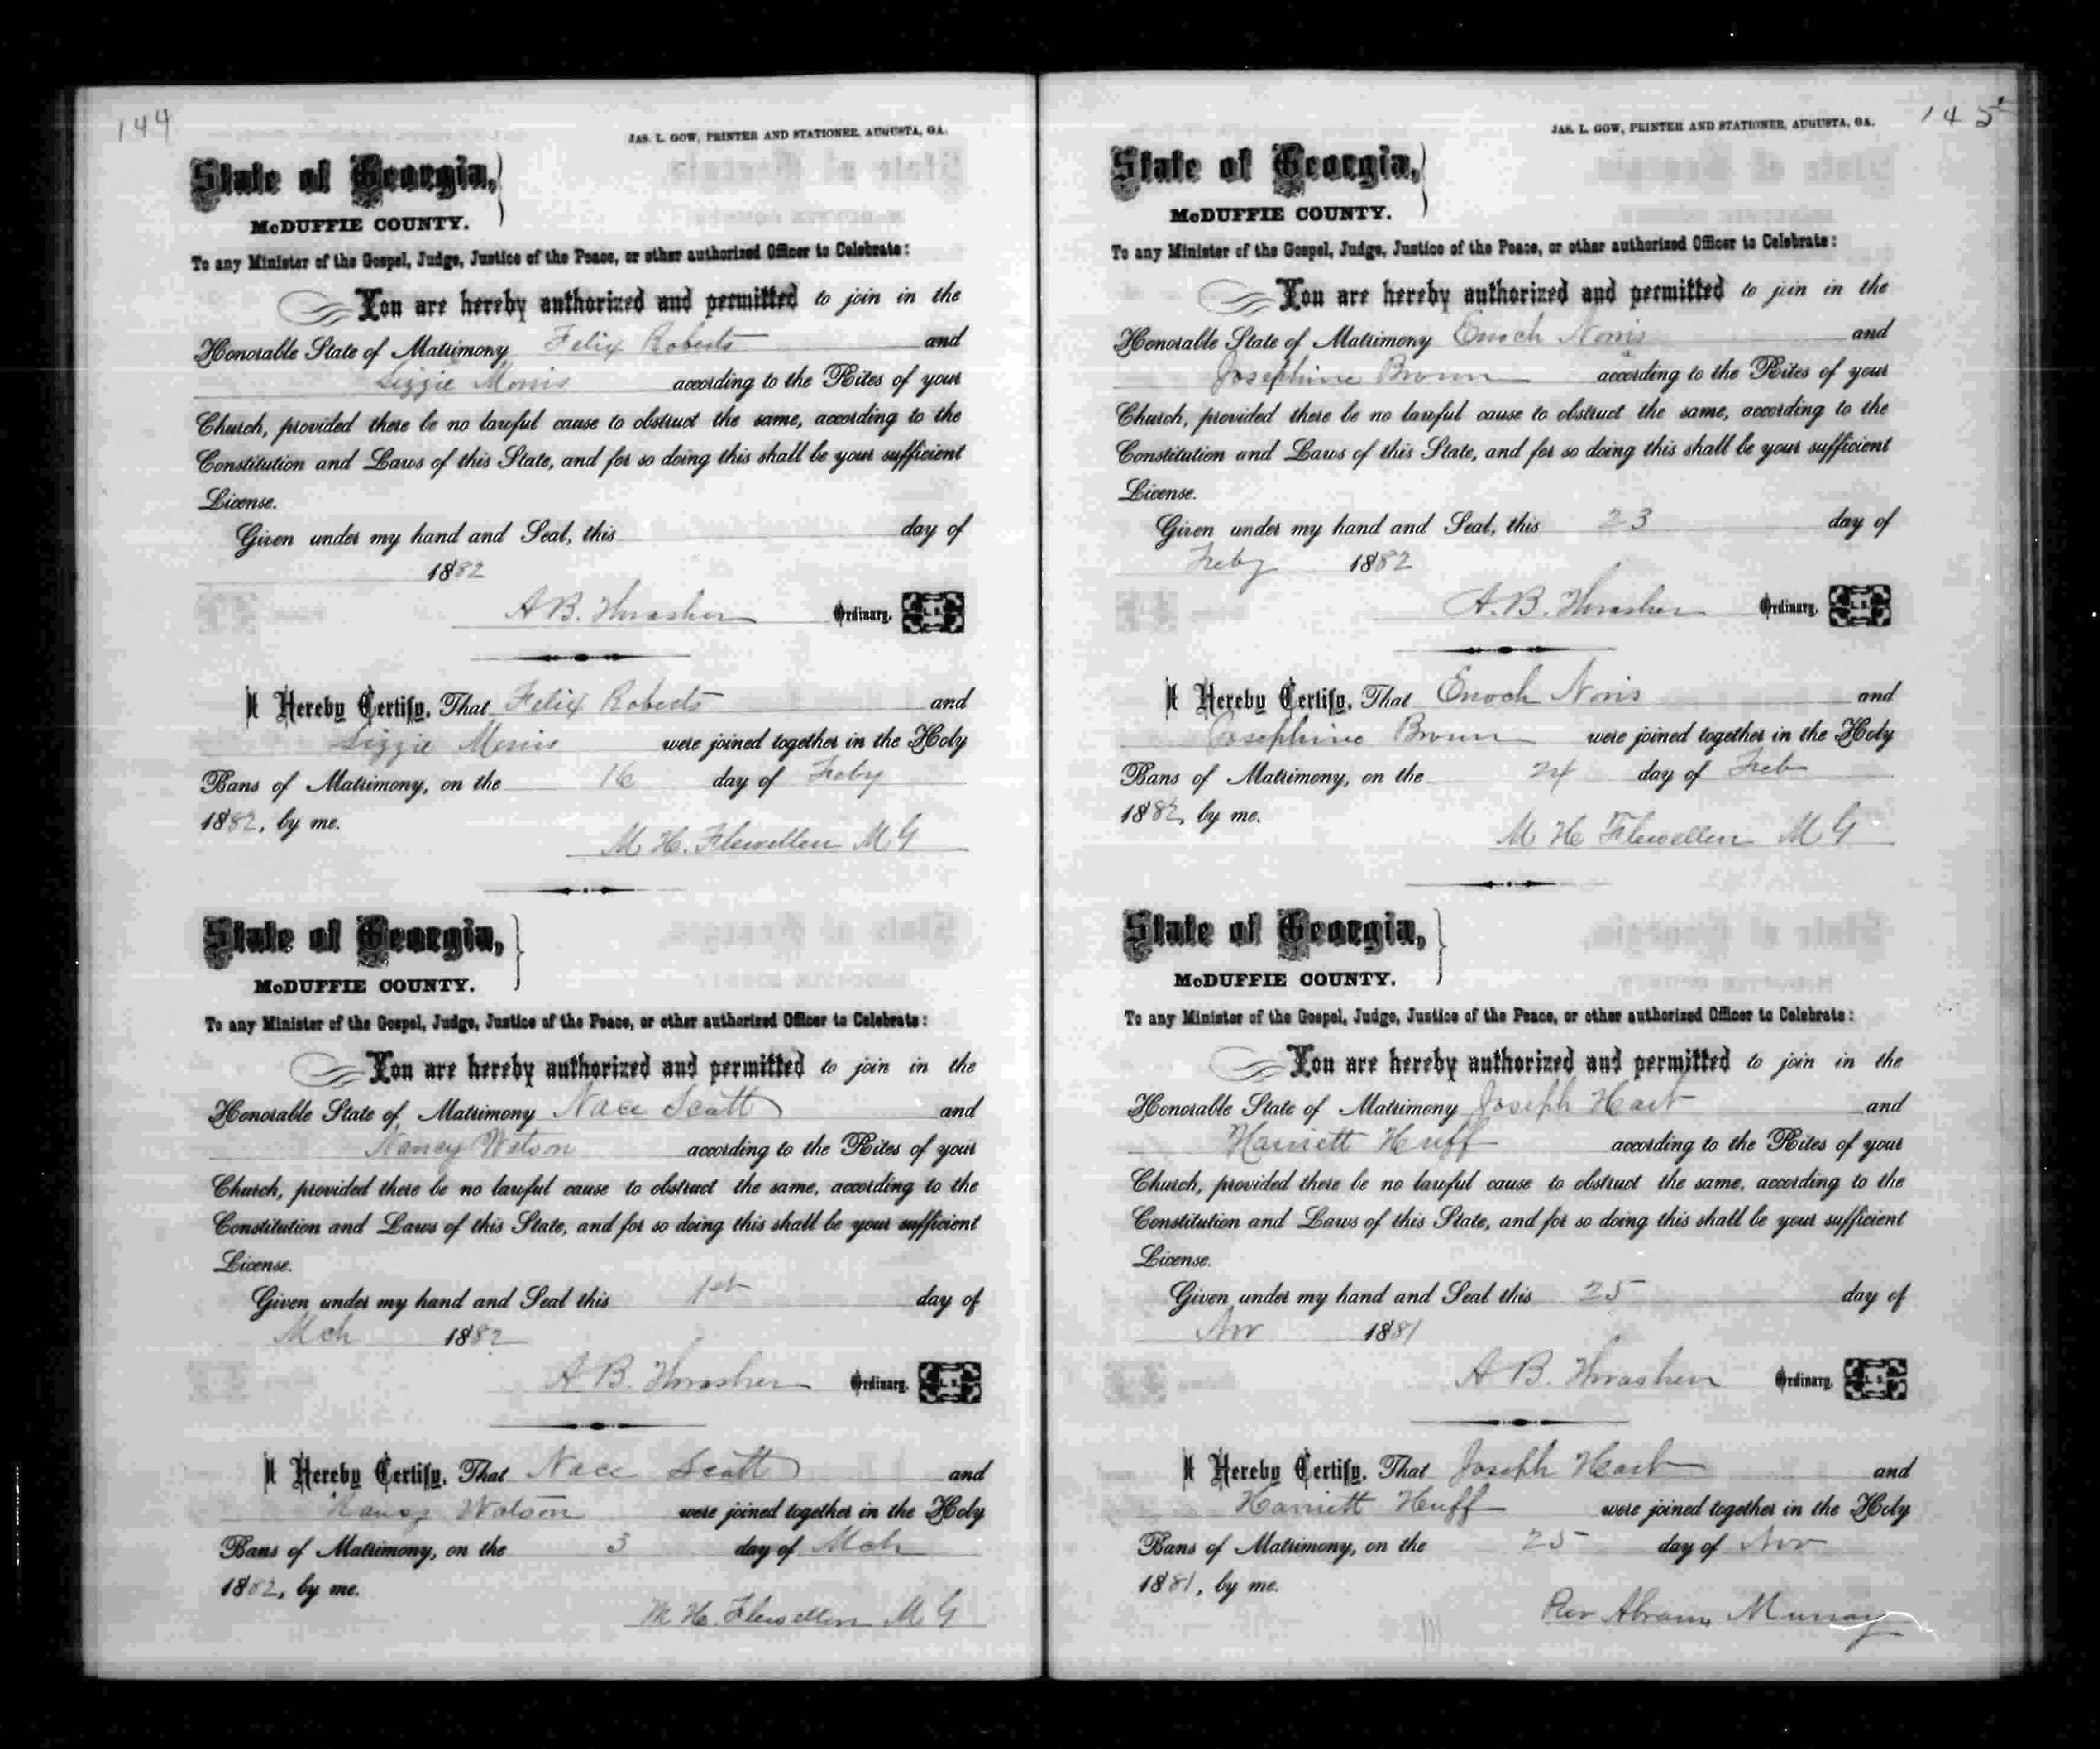 144
JAS. L. GOW, PRINTER AND STATIONER, AUGUSTA, GA.
State of Georgia,
McDUFFIE COUNTY.
To any Minister of the Gospel, Judge, Justice of the Peace, or other authorized Officer to Celebrate:
You are hereby authorized and permitted to join in the
Honorable State of Matrimony Felix Roberts and
Lizzie Morris according to the Rites of your
Church, provided there be no lawful cause to obstruct the same, according to the
Constitution and Laws of this State, and for so doing this shall be your sufficient
License.
Given under my hand and Seal, this day of
1882
A B. Thrasher Ordinary. L. S.
I Hereby Certify, That Felix Roberts and
Lizzie Morris were joined together in the Holy
Bans of Matrimony, on the 16 day of Feby
1882, by me.
M H. Flewellen M G
State of Georgia,
McDUFFIE COUNTY.
To any Minister of the Gospel, Judge, Justice of the Peace, or other authorized Officer to Celebrate:
You are hereby authorized and permitted to join in the
Honorable State of Matrimony Nace Scott and
Nancy Watson according to the Rites of your
Church, provided there be no lawful cause to obstruct the same, according to the
Constitution and Laws of this State, and for so doing this shall be your sufficient
License.
Given under my hand and Seal this 1st day of
Mch 1882
A B. Thrasher Ordinary. L. S.
I Hereby Certify, That Nace Scott and
Nancy Watson were joined together in the Holy
Bans of Matrimony, on the 3 day of Mch
1882, by me.
M H. Flewellen M G
145
JAS. L. GOW, PRINTER AND STATIONER, AUGUSTA, GA.
State of Georgia,
McDUFFIE COUNTY.
To any Minister of the Gospel, Judge, Justice of the Peace, or other authorized Officer to Celebrate:
You are hereby authorized and permitted to join in the
Honorable State of Matrimony Enoch Norris and
Josephine Brown according to the Rites of your
Church, provided there be no lawful cause to obstruct the same, according to the
Constitution and Laws of this State, and for so doing this shall be your sufficient
License.
Given under my hand and Seal, this 23 day of
Feby 1882
A. B. Thrasher Ordinary. L. S.
I Hereby Certify, That Enoch Norris and
Josephine Brown were joined together in the Holy
Bans of Matrimony, on the 24 day of Feb
1882, by me.
M H Flewellen M G
State of Georgia,
McDUFFIE COUNTY.
To any Minister of the Gospel, Judge, Justice of the Peace, or other authorized Officer to Celebrate:
You are hereby authorized and permitted to join in the
Honorable State of Matrimony Joseph Hart and
Harriett Huff according to the Rites of your
Church, provided there be no lawful cause to obstruct the same, according to the
Constitution and Laws of this State, and for so doing this shall be your sufficient
License.
Given under my hand and Seal this 25 day of
Nov 1881
A B. Thrasher Ordinary. L. S.
I Hereby Certify, That Joseph Hart and
Harriett Huff were joined together in the Holy
Bans of Matrimony, on the 25 day of Nov
1881, by me.
Rev Abram Murray